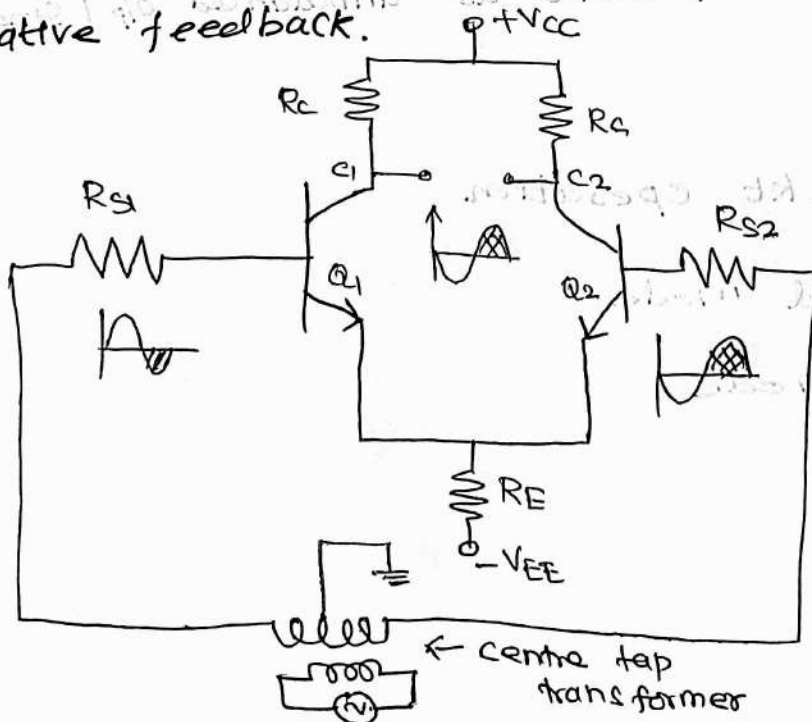 ative feedback.
+VCC
Rc
Rc
C1
C2
RS1
RS2
Q1
Q2
RE
-VEE
← centre tap
transformer